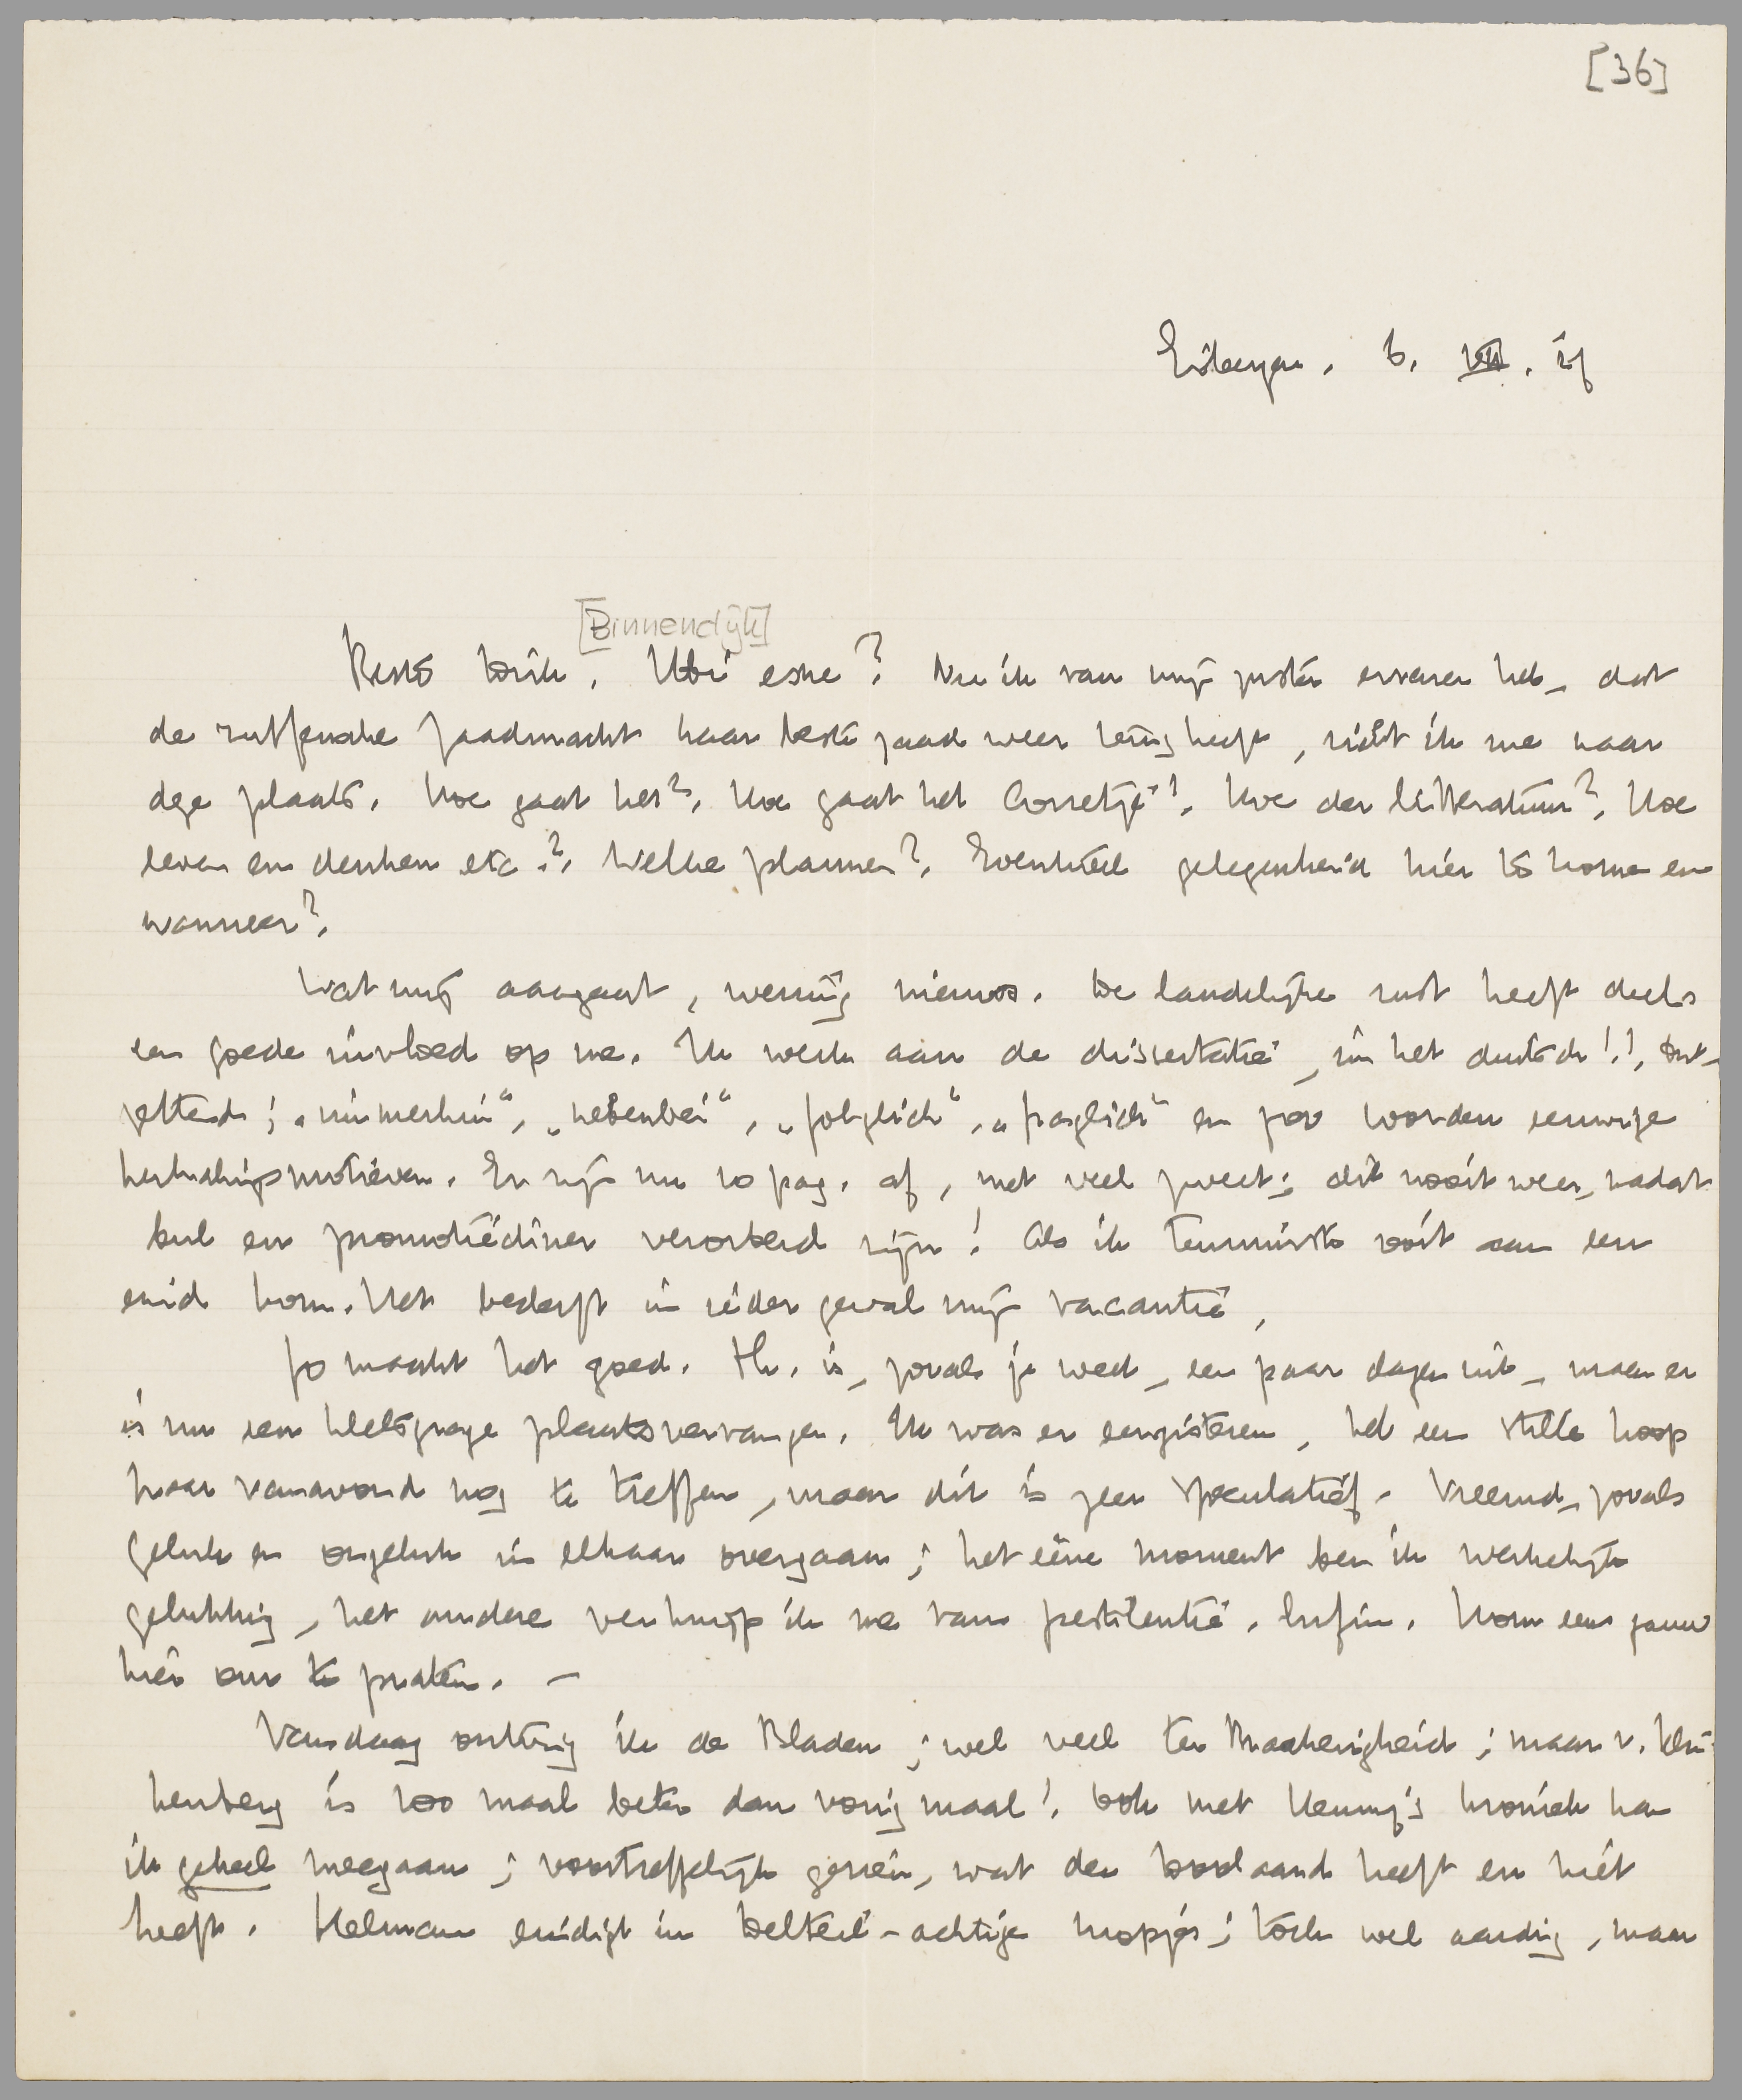 [36]
Eibergen, 6. VII. 25
[Binnendijk]
Beste Dick, Ubi esne? Nu ik van mijn zuster ervaren heb, dat
de zutfensche zaadmacht haar beste zaad weer terug heeft, richt ik me naar
deze plaats. Hoe gaat het?. Hoe gaat het Corretje?!. Hoe der litteratuur?. Hoe
leven en denken etc.?. Welke plannen?. Eventueel gelegenheid hier te komen en
wanneer?.
Wat mij aangaat, weinig nieuws. De landelijke rust heeft deels
een goede invloed op me. Ik werk aan de dissertatie, in het duitsch!!, Ont-
zettend; „immerhin“, „nebenbei“, „folglich“, „fraglich“ en zoo worden eeuwige
herhalingsmotieven. Er zijn nu 10 pag. af, met veel zweet; dit nooit weer, nadat
bul en promotiediner verorberd zijn! Als ik tenminste ooit aan een
eind kom. Het bederft in ieder geval mijn vacantie,
Jo maakt het goed. Hr. is, zooals je weet, een paar dagen uit, maar er
is nu een kletsgrage plaatsvervanger. Ik was er eergisteren, heb een stille hoop
haar vanavond nog te treffen, maar dit is zeer speculatief. Vreemd, zooals
geluk en ongeluk in elkaar overgaan; het eene moment ben ik werkelijk
gelukkig, het andere verknijp ik me van pestilentie. Enfin. Kom eens gauw
hier om te praten. —
Vandaag ontving ik de Bladen; wel veel ter Braakerigheid; maar v. Klin-
kenberg is 100 maal beter dan vorig maal! Ook met Henny's kroniek kan
ik geheel meegaan; voortreffelijk gezien, wat den Doolaard heeft en niet
heeft. Helman eindigt in Belteil-achtige mopjes; toch wel aardig, maar